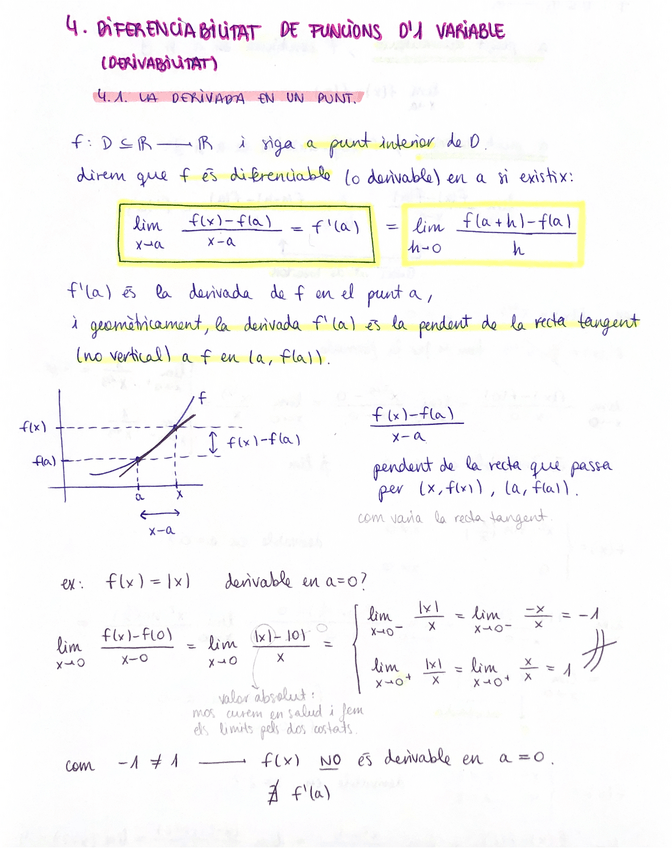 4. DIFERENCIABILITAT DE FUNCIONS D'1 VARIABLE
(DERIVABILITAT)
4.1. LA DERIVADA EN UN PUNT.
f: D ⊆ ℝ ⟶ ℝ i siga a punt interior de D.
direm que f és diferenciable (o derivable) en a si existix:
lim x→a (f(x)-f(a))/(x-a) = f'(a) = lim h→0 (f(a+h)-f(a))/h
f'(a) és la derivada de f en el punt a,
i geomètricament, la derivada f'(a) és la pendent de la recta tangent
(no vertical) a f en (a, f(a)).
f
f(x)
f(x)-f(a)
f(a)
a x
x-a
(f(x)-f(a))/(x-a)
pendent de la recta que passa
per (x, f(x)), (a, f(a)).
com varia la recta tangent
ex: f(x) = |x| derivable en a=0?
lim x→0 (f(x)-f(0))/(x-0) = lim x→0 (|x|-|0|)/x = { lim x→0⁻ |x|/x = lim x→0⁻ -x/x = -1
lim x→0⁺ |x|/x = lim x→0⁺ x/x = 1
valor absolut:
mos curem en salud i fem
els limits pels dos costats.
com -1 ≠ 1 ⟶ f(x) NO és derivable en a=0.
∄ f'(a)